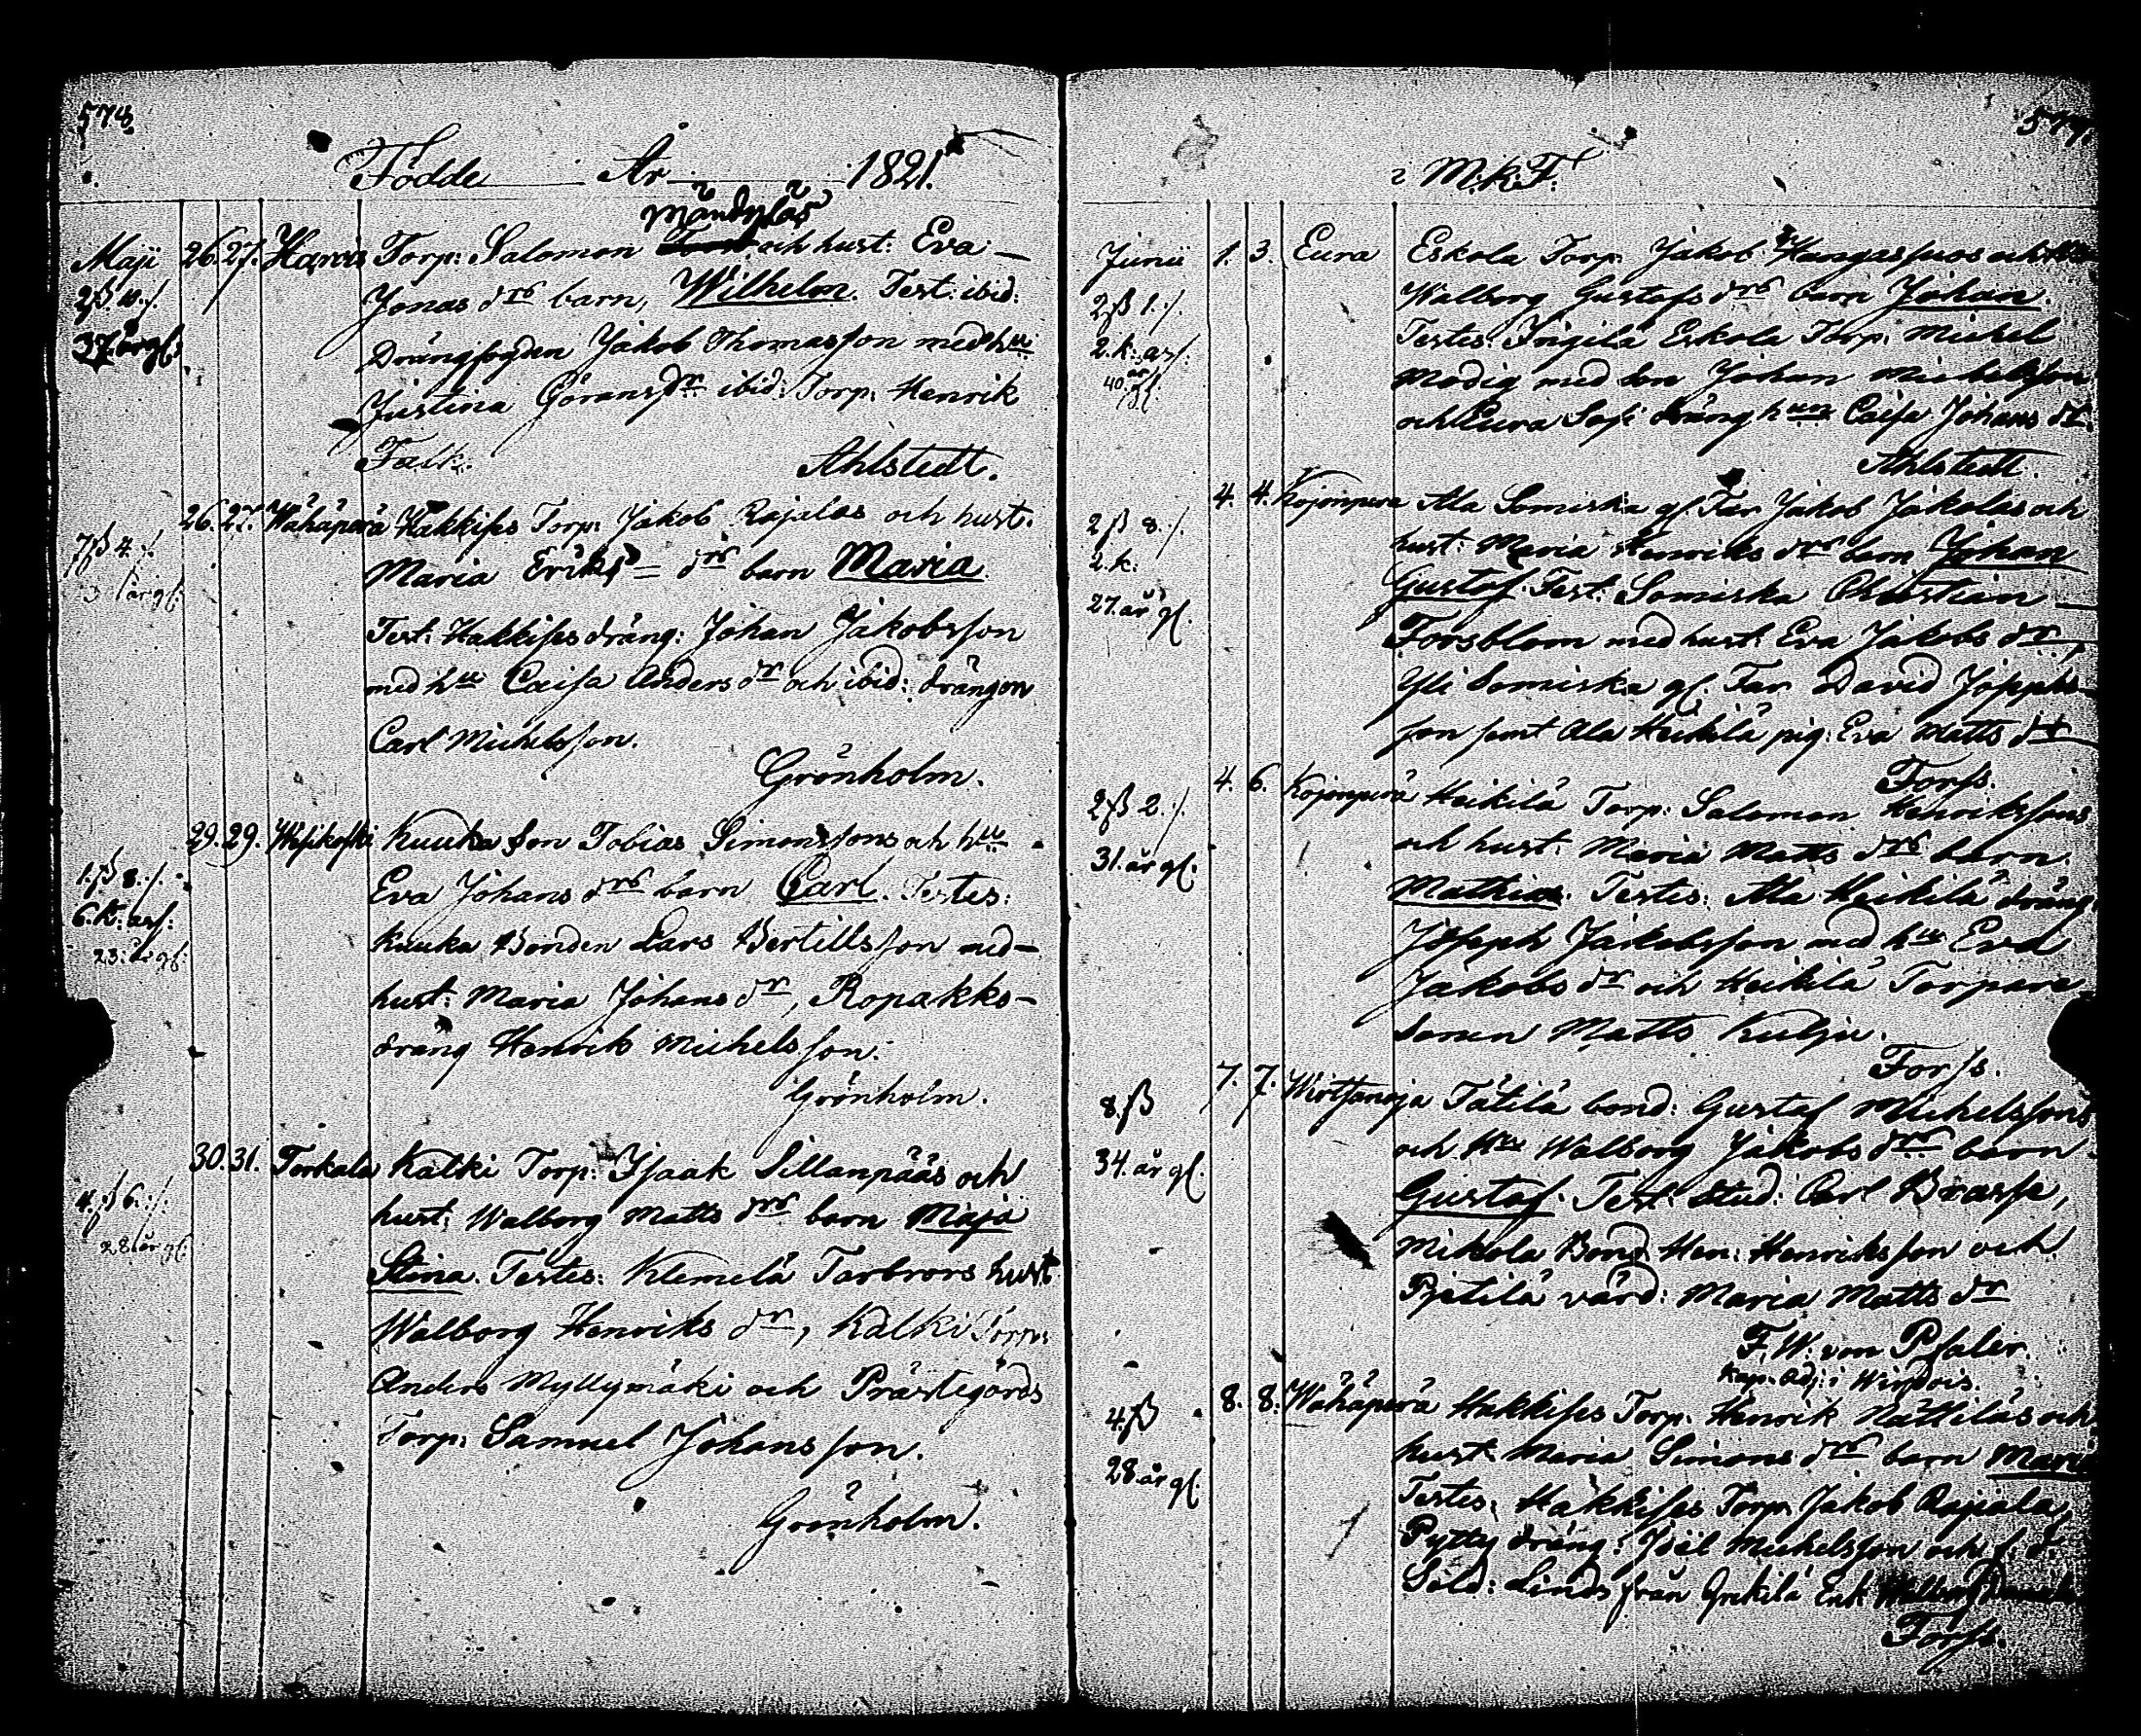 578.
Födde År 1821.
Mändyläs
Maji 26. 27. Harois Torp: Salomon och hust: Eva
Jonas drs barn, Wilhelm. Test: ibid:
37 år gl. Drängfogden Jakob Thomasson med hu
Justina Göransdr ibid: Torp. Henrik
Falk.
Ahlstedt.
26. 27. Wähäperä Hakkises Torp: Jakob Rajalas och hust.
7ß 4 Maria Eriks drs barn Maria
år gl. Test: Hakkises dräng: Johan Jakobsson
med hu Caisa Anders dr och ibid: drängen
Carl Michelsson.
Grönholm.
29. 29. Kuuka Son Tobias Simonssons och hu
1.ß 8./. Eva Johans drs barn Carl. Testes:
6. k: as: Kuuka Bonden Lars Bertillsson med
23. år gl: hust: Maria Johans dr, Ropakko-
dräng Henrik Michelsson.
Grönholm.
30. 31. Torkala Kalki Torp: Isaak Sillanpääs och
4.ß 6./. hust: Walborg Matts drs barn Maja
28 år gl: Stina. Testes: Klemelä Farbrors hust
Walborg Henriks dr, Kalki Torp:
Anders Myllymäki och Prästegårds
Torp: Samuel Johansson.
Grönholm.
579.
i M:k:F:
Junii 1. 3. Eura Eskola Torp. Jakob Kangassuos och
2ß 1./. Walborg Gustafs drs barn Johan.
2. k: as: Testes: Ingilä Eskola Torp. Michel
40. år gl. Modig med Son Johan Michelsson
och Eura dräng hu Caisa Johans dr.
Ahlstedt.
4. 4. Kojonperä Ala Somiska gl. Far Jakob Jakolas och
2ß 8./. hust: Maria Henriks drs barn Johan
2. k: Gustaf. Test: Somiska Christian
27. år gl. Forsblom med hust: Eva Jakobs dr,
Yli Somiska gl. Far David Joseph-
son samt Ala Heikilä pig: Eva Matts dr
Forss.
4. 6. Kojonperä Heikilä Torp: Salomon Henrikssons
2ß 2./. och hust: Maria Matts drs barn
31. år gl. Mathias. Testes: Ala Heikilä dräng
Joseph Jakobsson med hu Eva
Jakobs dr och Heikilä Torpare
Sonen Matts Kulju.
Forss.
7. 7. Wirtsanoja Tätilä bond: Gustaf Michelssons
8.ß och Hu Walborg Jakobs drs barn
34. år gl. Gustaf. Test: Stud: Carl Brasse,
Mikola Bond Hen: Henriksson och
Pjetilä värd: Maria Matts dr
F. W. von Pfaler.
Kap. Adj: i Wirdois.
8. 8. Wähäperä Hakkises Torp. Henrik Nättiläs och
4.ß hust: Maria Simons drs barn Maria
28 år gl. Testes: Hakkises Torp. Jakob Rajala,
Pytty dräng: Joël Michelsson och f. d.
Sold: Linds från Enk
Forss.